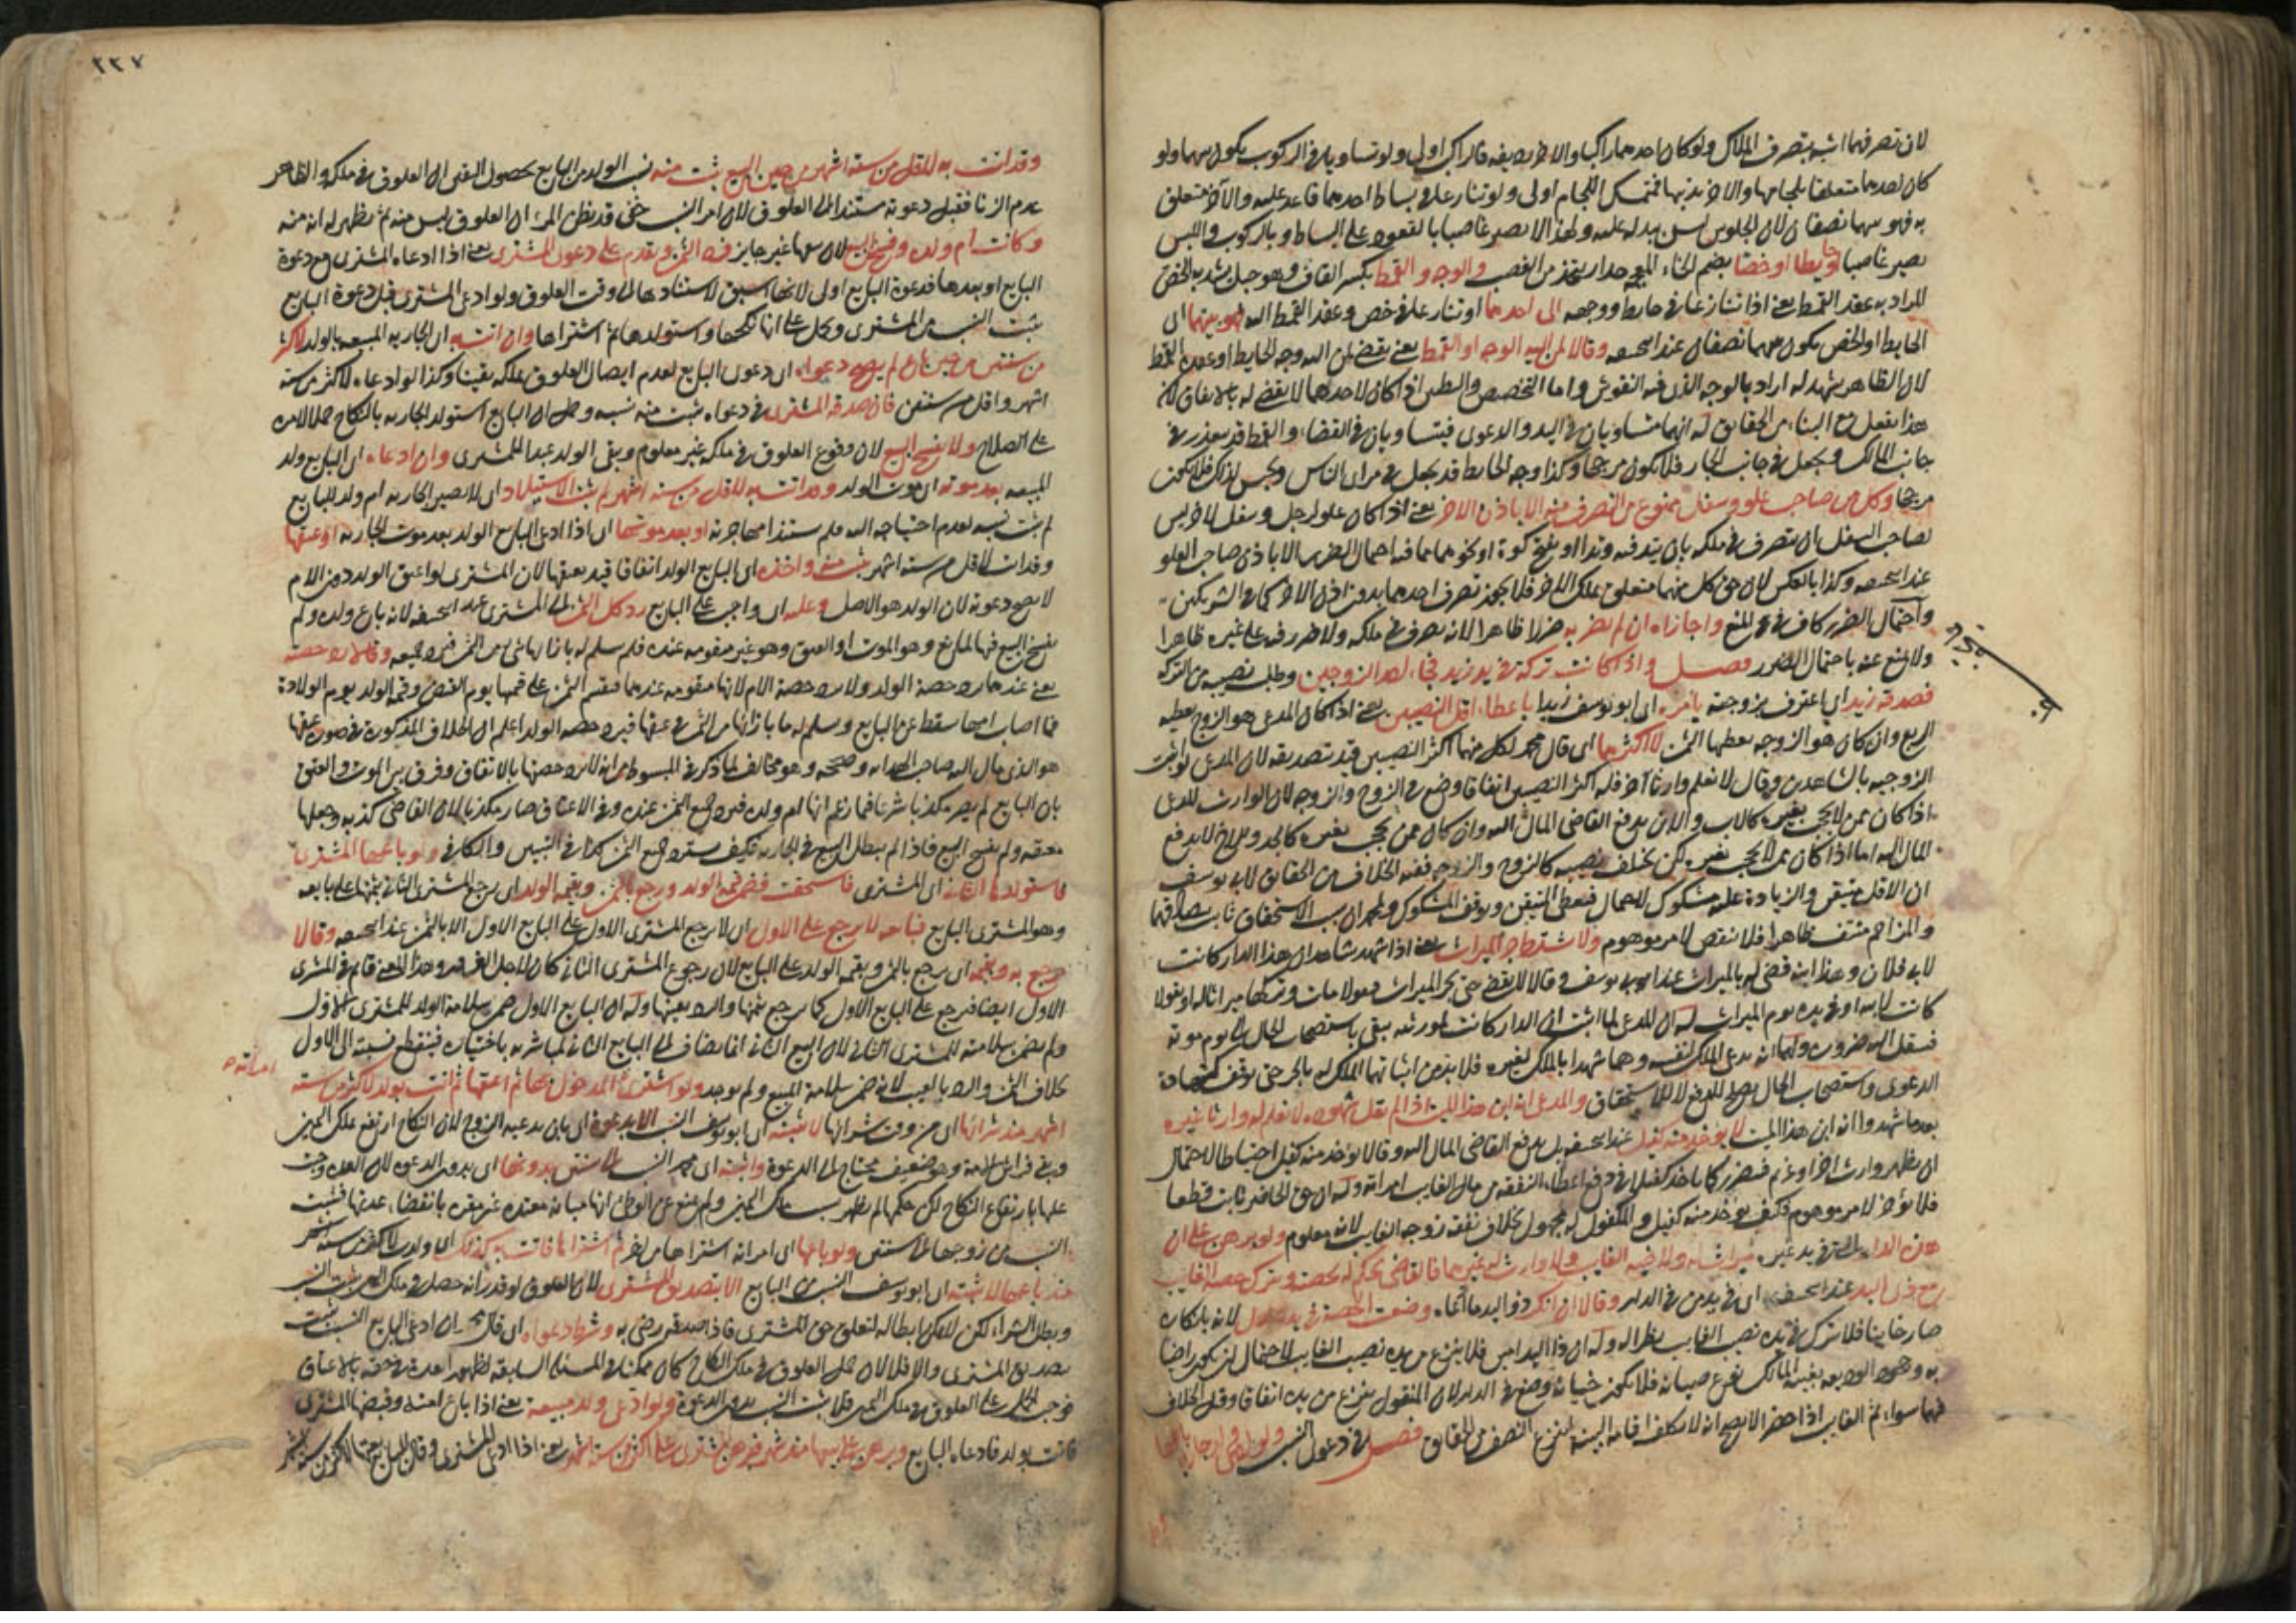 لان تصرفهما اشبه بتصرف الملاك ولو كان احدهما راكبا والاخر رديفه فالراكب اولى ولو تساويا في الركوب يكون بينهما ولو
كان احدهما متعلقا بلجامها والاخر بذنبها فمتمسك اللجام اولى ولو تنازعا في بساط احدهما قاعد عليه والآخر متعلق
به فهو بينهما نصفان لان الجلوس ليس بيد له عليه ولهذا لا يصير غاصبا بالقعود على البساط وبالركوب واللبس
يصير غاصبا او حايطا او خصا بضم الخاء المعجمه جدار يتخذ من القصب والوجه والقمط بكسر القاف وهو حبل يشد به الخص
المراد به عقد القمط يعني اذا تنازعا في حايط ووجهه الى احدهما او تنازعا في خص وعقد القمط اليه فهو بينهما اى
الحايط او الخص يكون بينهما نصفان عند ابيحنيفه وقالا لمن اليه الوجه او القمط يعني يقضى لمن اليه وجه الحايط او عقدة القمط
لان الظاهر يشهد له اراد بالوجه الذى فيه النقوش واما التجصيص والتطيين اذا كان لاحدهما لا يقضى له بالاتفاق لانه
هذا يفعل مع البناء من الحقايق له انهما متساويان في اليد والدعوى فيتساويان في القضاء والقمط قد يعذر في
جانب المالك ويجعل في جانب الجار فلا يكون مرجحا وكذا وجه الحايط قد يجعل في مراى الناس لذلك فلا يكون
مرجحا وكل من صاحب علو وسفل ممنوع من التصرف فيه الا باذن الاخر يعني اذا كان علو لرجل وسفل لاخر ليس
لصاحب السفل ان يتصرف في ملكه بان يتد فيه وتدا او يفتح كوة او نحوهما مما فيه احتمال الضرر الا باذن صاحب العلو
عند ابيحنيفه وكذا بالعكس لان حق كل منهما متعلق بملك الاخر فلا يجوز تصرف احدهما بدون اذن الاخر كما في الشريكين
واحتمال الضرر كاف في المنع واجازاه ان لم يضر به ضررا ظاهرا لانه تصرف في ملكه ولا ضرر فيه على غيره ظاهرا
ولا يمنع عنه باحتمال الضرر فصل واذا كانت تركة في يد زيد فجاء احد الزوجين وطلب نصيبه من التركة
فصدقه زيد اى اعترف بزوجيته يامره اى ابو يوسف زيدا باعطاء اقل النصيبين يعني اذا كان المدعى هو الزوج يعطيه
الربع وان كان هو الزوجه يعطيها الثمن لا اكثرهما اى قال محمد لكل منهما اكثر النصيبين قيد بتصديقه لان المدعى لو اثبت
الزوجيه بالشاهدين وقال لا نعلم وارثا آخر فله اكثر النصيبين اتفاقا وضع في الزوج والزوجه لان الوارث المدعى
اذا كان ممن لا يحجب بغيره كالاب والابن يدفع القاضى المال اليه وان كان ممن يحجب بغيره كالجد والاخ لا يدفع
المال اليه اما اذا كان ممن لا يحجب بغيره لكن يختلف نصيبه كالزوج والزوجه ففيه الخلاف من الحقايق لابى يوسف
ان الاقل متيقن والزيادة عليه مشكوك للاحتمال فيعطى المتيقن ويوقف المشكوك ولمحمد ان سبب الاستحقاق ثابت
والمزاحم منتف ظاهرا فلا ينقص لامر موهوم ولا يشترط جر الميراث يعني اذا شهد شاهدان ان هذا الدار كانت
لابى فلان وهذا ابنه قضى له بالميراث عند ابى يوسف وقالا لا يقضى حتى يجر الميراث فيقولا مات وتركها ميراثا له او يقولا
كانت لابيه او في يده يوم الميراث له ان المدعى لما اثبت ان الدار كانت لمورثه يبقى باستصحاب الحال الى يوم موته
فينتقل اليه ضرورة ولهما انه يدعى الملك لنفسه وهما شهدا بالملك لغيره فلا بد من اثباتهما الملك له بالجر حتى يوقف
الدعوى واستصحاب الحال يصلح للدفع لا للاستحقاق والمدعى انه ابن هذا الميت اذا لم يقل شهوده لا نعلم له وارثا غيره
بعد ما شهدوا انه ابن هذا الميت لا يؤخذ منه كفيل عند ابيحنيفه بل يدفع القاضى المال اليه وقالا يؤخذ منه كفيل احتياطا لاحتمال
ان يظهر وارث اخر او غريم فيتضرر كما ياخذ كفيلا في دفع اعطاء النفقه من مال الغايب امراته وله ان حق الحاضر ثابت قطعا
فلا يؤخر لامر موهوم فكيف يؤخذ منه كفيل والمكفول له مجهول بخلاف نفقه زوجه الغايب لانه معلوم ولو برهن على ان
هذه الدار التى في يد غيره ميراث له ولاخيه الغايب ولا وارث له غيرهما فالقاضى يحكم له بحصته ويترك حصه الغايب
مع ذى اليد عند ابيحنيفه اى في يد من في الدار وقالا ان انكر ذو اليد ما ادعاه وضعت الحصة في يد عدل لانه بانكاره
صار خاينا فلا يترك في يده نصيب الغايب نظرا له وله ان ذا اليد امين فلا ينزع من يده نصيب الغايب لاحتمال
المالك نوع صيانه وضع في الدار لان المنقول ينزع من يده اتفاقا وقيل الخلاف
فيهما سواء ثم الغايب اذا حضر الاصح انه لا يكلف اقامه البينه لنزع النصف من الحقايق فصل في دعوى النسب
٢٢٧
وقد اتت به لاقل من ستة اشهر من حين البيع ثبت منه نسب الولد من البايع لحصول اليقين ان العلوق في ملكه والظاهر
عدم الزنا فتقبل دعوته مستندا الى العلوق لان امر النسب خفى قد يظن المرء ان العلوق ليس منه ثم يظهر له انه منه
وكانت ام ولده وفسخ البيع لان بيعها غير جايز فيرد الثمن ويقدم على دعوى المشترى يعني اذا ادعاه المشترى مع دعوة
البايع او بعدها فدعوة البايع اولى لانها اسبق لاستنادها الى وقت العلوق ولو ادعى المشترى قبل دعوة البايع
يثبت النسب من المشترى ويحمل على انه نكحها واستولدها ثم اشتراها وان اتت به اى الجاريه المبيعه بالولد لاكثر
من سنتين من حين باع لم يصح دعواه اى دعوى البايع لعدم اتصال العلوق بملكه يقينا وكذا لو ادعاه لاكثر من ستة
اشهر واقل من سنتين فان صدقه المشترى في دعواه ثبت منه نسبه وحمل ان البايع استولد الجاريه بالنكاح حملا لامره
على الصلاح ولا يفسخ البيع لان وقوع العلوق في ملكه غير معلوم ويبقى الولد عبدا للمشترى وان ادعاه اى البايع ولد
المبيعه بعد موته اى موت الولد وقد اتت به لاقل من سته اشهر لم يثبت الاستيلاد اى لا تصير الجاريه ام ولد للبايع
لم يثبت نسبه لعدم احتياجه اليه او بعد موتها اى اذا ادعى البايع الولد بعد موت الجاريه او عتقها
وقد اتت لاقل من ستة اشهر يثبت منه واخذه اى البايع الولد اتفاقا قيد بعتقها لان المشترى لو اعتق الولد دون الام
لا يصح دعوته لان الولد هو الاصل وعليه اى واجب على البايع رد كل الثمن الى المشترى عند ابيحنيفه لانه باع ولده ولم
يفسخ البيع فيها لمانع وهو الموت او العتق وهو غير متقومه عنده فلم يسلم له بازايها شى من الثمن فيرد جميعه وقالا رد حصته
يعني عندهما يرد حصة الولد ولا يرد حصة الام لانها متقومه عندهما فيقسم الثمن على قيمتها يوم القبض وقيمة الولد يوم الولادة
فما اصاب امها سقط عن البايع وسلم له ما بازائها من الثمن في عتقها فيرد حصه الولد اعلم ان الخلاف المذكور في صورة عتقها
هو الذى مال اليه صاحب الهدايه وصححه وهو مخالف لما ذكر في المبسوط من انه لا يرد حصتها بالاتفاق وفرق بين الموت والعتق
بان البايع لم يصر مكذبا شرعا فيما زعم انها ام ولده فيرد جميع الثمن عنده وفى الاعتاق صار مكذبا لان القاضى كذبه وجعلها
معتقه ولم يفسخ البيع فاذا لم يبطل البيع في الجاريه فكيف يسترد جميع الثمن كذا في التبيين والكافى ولو باعها المشترى
فاستولدها الثانى اى المشترى فاستحقت فضمن قيمه الولد ورجع بالثمن وبقيمه الولد اى يرجع المشترى الثانى بثمنها على بايعه
وهو المشترى البايع فبايعه لا يرجع على الاول اى لا يرجع المشترى الاول على البايع الاول الا بالثمن عند ابيحنيفه وقالا
يرجع به وبقيمته اى يرجع بالثمن وبقيمه الولد على البايع لان رجوع المشترى الثانى كان لاجل الغرور وهذا المعنى قايم في المشترى
الاول ايضا فيرجع على البايع الاول كما يرجع بثمنها والرد بعيبها وله ان البايع الاول ضمن سلامة الولد للمشترى الاول
ولم يضمن سلامته للمشترى الثانى لان البيع الثانى انما يضاف الى البايع الثانى لمباشرته باختياره فينقطع نسبته الى الاول
بخلاف الثمن والرد بالعيب لانه ضمن سلامة المبيع ولم يوجد ولو اشترى امراته المدخول بها ثم اعتقها ثم اتت بولد لاكثر من ستة
اشهر منذ شرائها اى من وقت شرائها لا يثبته اى ابو يوسف النسب الا بدعوة اى بان يدعيه الزوج لان النكاح ارتفع بملك اليمين
وبقى فراش الامة وهو ضعيف محتاج الى الدعوة واثبته اى محمد النسب الى سنتين بدونها اى بدون الدعوه لان العدة وجبت
عليها بارتفاع النكاح لكن حكمها لم يظهر بسبب ملك اليمين ولم يمنع عن الوطى انها مباينه معتده غير مقره بانقضاء عدتها فيثبت
النسب من زوجها الى سنتين ولو باعها اى امراته اشتراها من اخر ثم اشتراها فاتت به كذلك اى ولدت لاكثر من ستة اشهر
منذ باعها لا يثبته اى ابو يوسف النسب من البايع الا بتصديق المشترى لان العلوق لو قدر انه حصل في ملك اليمين يثبت النسب
وبطل الشراء لكن لا يمكن ابطاله لتعلق حق المشترى فاذا صدقه رضى به وشرط دعواه اى قال محمد ان ادعى البايع النسب يثبت
بتصديق المشترى والا فلا لان حمل العلوق في ملك النكاح كان ممكنا في المسئله السابقه لظهور العدة في حقه بالاعتاق
فوجب الحمل على العلوق في ملك اليمين فلا يثبت النسب بدون الدعوة ولو ادعى ولد مبيعة يعني اذا باع امته وقبضها المشترى
فاتت بولد فادعاه البايع وبرهن على بيعها منذ شهر فبرهن المشترى على اكثر من ستة اشهر يعني اذا ادعى المشترى وقال البايع بعتها لاكثر من ستة اشهر
امراته